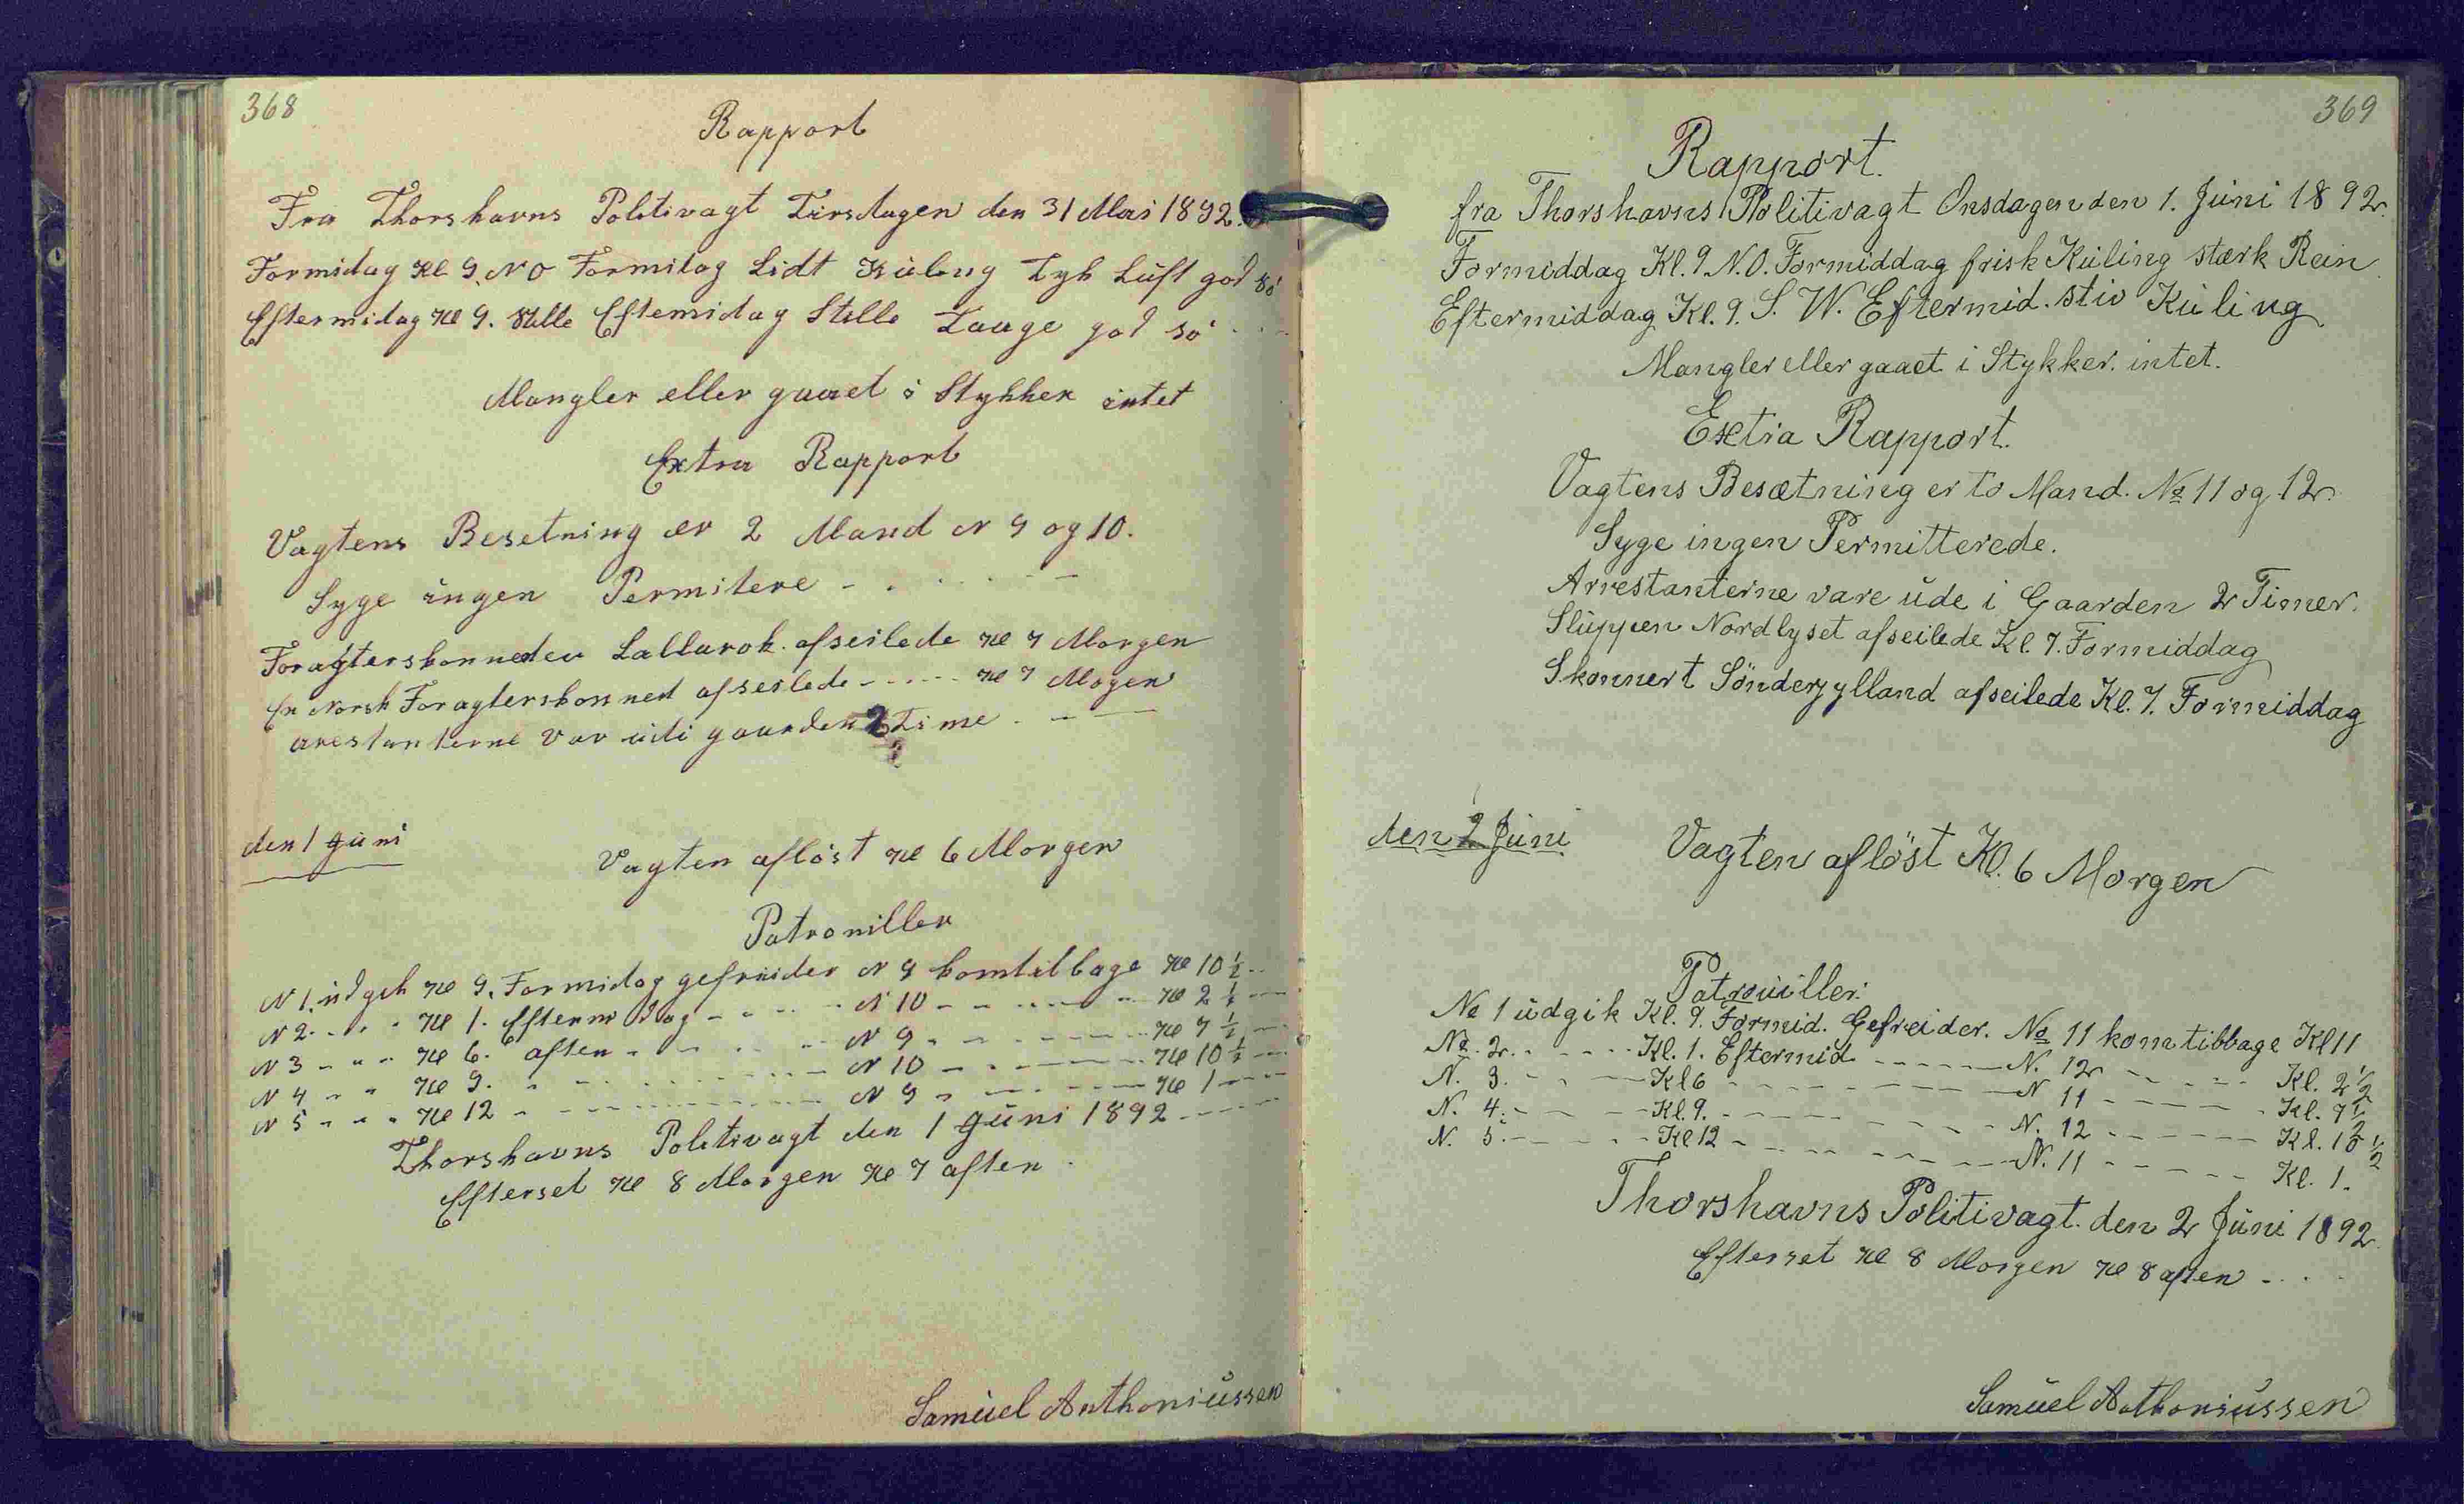 368
Rapport
Fra Thorshavns Politivagt Tirsdagen den 31 Mai 1892.
Formidag Kl 9. NO Formidag Lidt Küling Tyk Lüft god sö
Eftermidag Kl 9. Stille Eftemidag Stille Taage god sö
Mangler eller gaaet i Stykker intet
Extra Rapport
Vagtens Besetning er 2 Mand N 9 og 10.
Syge ingen Permitere
Foragterskonneden Lallarok. afseilede Kl 7 Morgen
En Norsk Foragterskonned afseilede Kl 7 Mogen
arestanterne var üdi gaarden 2 Time
den 1 Juni
Vagten aflöst Kl 6 Morgen
Patroniller
N 1. üdgik Kl 9. Formidag gefreider N 9 komtilbage Kl 10 ½
N 2. Kl 1. Eftermidag N 10 Kl 2 ½
N 3 Kl 6. aften N 9 Kl 7 ½
N 4 Kl 9. N 10 Kl 10 ½
N 5 Kl 12 N 9 Kl 1
Thorshavns Politivagt den 1 Jüni 1892
Efterset Kl 8 Morgen Kl 7 aften
Samüel Anthoniüssen
369
Rapport.
fra Thorshavns Politivagt Onsdagen den 1. Jüni 1892.
Formiddag Kl. 9. N.O. Formiddag frisk Küling stærk Rein
Eftermiddag Kl. 9. S. W. Eftermid. stiv Küling
Mangler eller gaaet i Stykker. intet.
Extra Rapport.
Vagtens Besætning er to Mand. No 11 og 12.
Syge ingen Permitterede.
Arrestanterne vare üde i Gaarden 2 Timer.
Slüppen Nordlyset afseilede Kl 7. Formiddag
Skonnert Sönderjylland afseilede Kl. 7. Formiddag
den 2 Jüni
Vagten aflöst Kl. 6 Morgen
Patrouiller.
No 1 üdgik Kl. 9. Formid. Gefreider. No 11 kom tilbage Kl 11
No. 2. Kl. 1. Eftermid N. 12 Kl. 2 ½
N. 3. Kl 6 N 11 Kl. 7 ½
N. 4. Kl. 9. N. 12 Kl. 10 ½
N. 5. Kl 12 N. 11 Kl. 1.
Thorshavns Politivagt. den 2 Jüni 1892
Efterset Kl 8 Morgen Kl 8 aften
Samüel Anthoniüssen